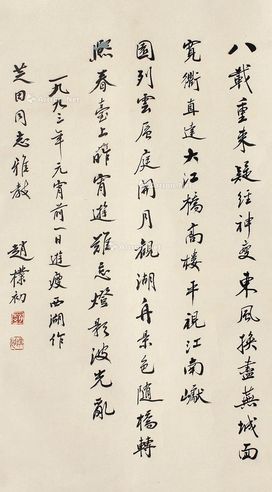 八載重來疑經神變東風換盡蕪城面
寬衢直達大江橋高樓平視江南巘
園列雲屏庭開月觀湖舟景色隨橋轉
熙春臺上昨宵遊難忘燈影波光亂
一九九三年元宵前一日遊瘦西湖作
芝田同志雅教
趙樸初